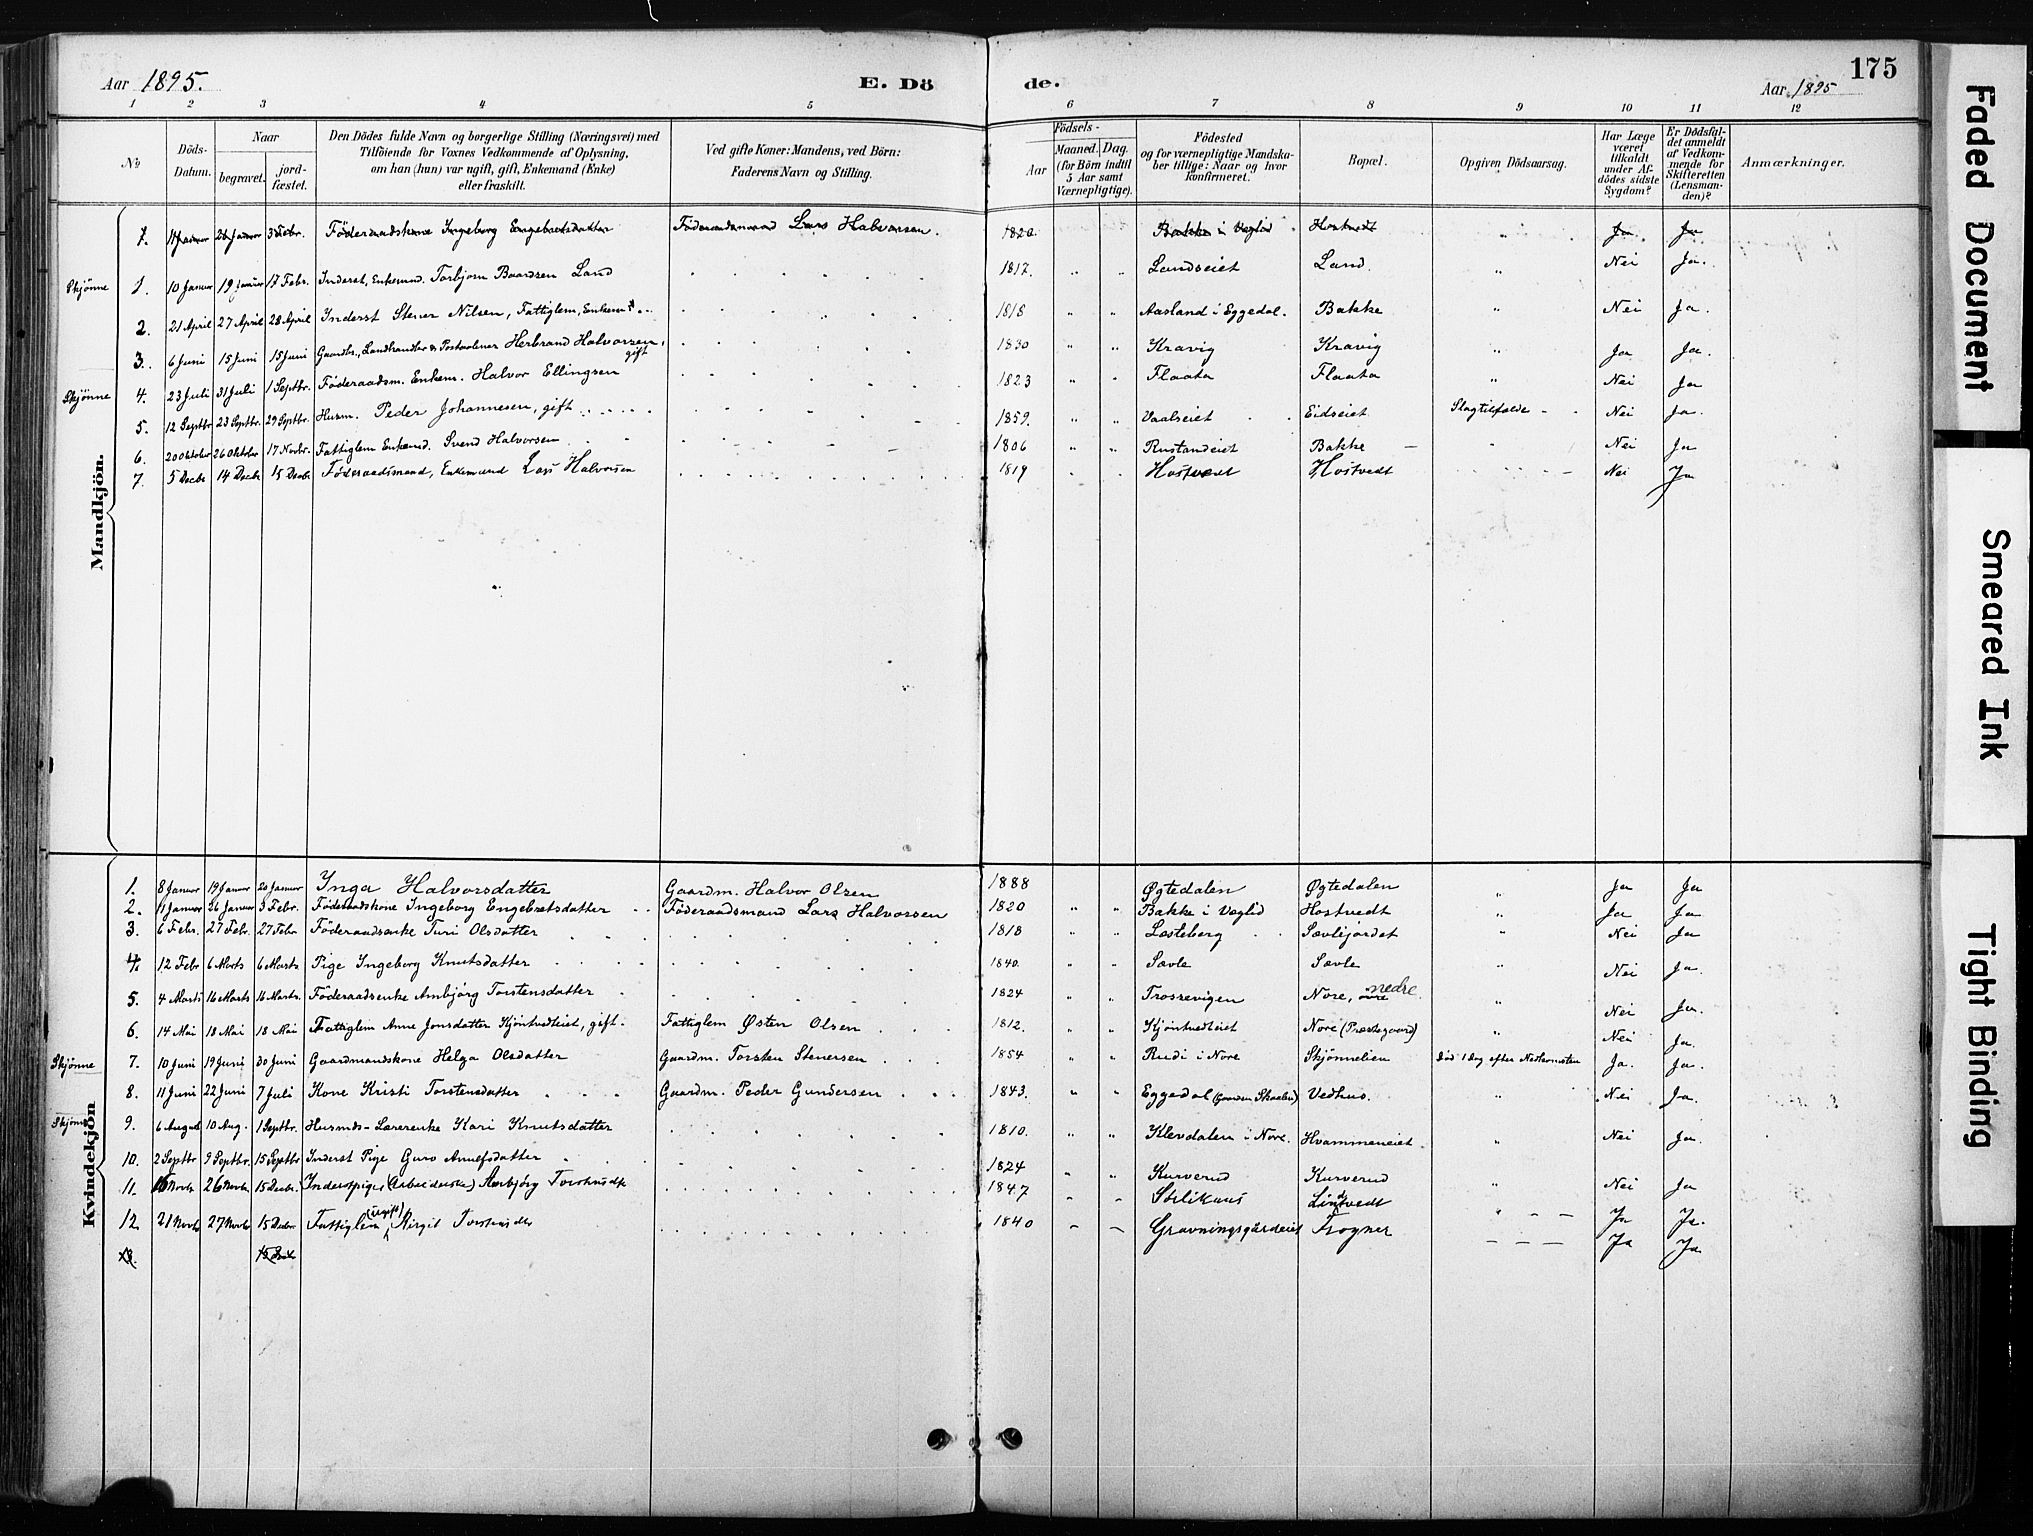 Aar 1895. E. Dö de. Aar 1895 175
1 2 3 4 5 6 7 8 9 10 11 12
No
Döds-Datum.
Naar begravet. jordfæstet.
Den Dödes fulde Navn og borgerlige Stilling (Næringsvei) med Tilföiende for Voxnes Vedkommende af Oplysning, om han (hun) var ugift, gift, Enkemand (Enke) eller fraskilt.
Ved gifte Koner: Mandens, ved Börn: Faderens Navn og Stilling.
Födsels- Aar Maaned. Dag. (for Börn indtil 5 Aar samt Værnepligtige).
Födested og for værnepligtige Mandskaber tillige: Naar og hvor konfirmeret.
Bopæl.
Opgiven Dödsaarsag.
Har Læge været tilkaldt under Afdödes sidste Sygdom?
Er Dödsfaldet anmeldt af Vedkommende for Skifteretten (Lensmanden)?
Anmærkninger.
Mandkjön.
1. 11 Januar 26 Januar 3 Febr. Föderaadskone Ingeborg Engebretsdatter Föderaadsmand Lars Halvorsen. 1820 Bakke i Veglid Hostvedt " Ja Ja
Skjönne 1. 10 Januar 19 Januar 17 Febr. Inderst, Enkemd. Torbjorn Baardsen Land 1817. " " Landseiet Land. " Nei Ja.
2. 21 April 27 April 28 April Inderst Stener Nilsen, Fattiglem, Enkem. 1818 " " Aasland i Eggedal. Bakke " Nei Ja.
3. 6 Juni 15 Juni 15 Juni Gaardbr., Landhandler & Postaabner Herbrand Halvorsen, gift 1830 " " Kravig Kravig " Ja Ja.
Skjönne 4. 23 Juli 31 Juli 1 Septbr. Föderaadsm. Enkem. Halvor Ellingsen 1823 " " Flaata Flaata " Nei Ja
5. 12 Septbr 23 Septbr. 29 Septbr. Husm. Peder Johannesen, gift 1859. " " Vaalseiet Eidseiet Slagtilfælde Nei Ja.
6. 20 Oktober 26 Oktober 17 Novbr. Fattiglem Enkemd. Svend Halvorsen 1806 " " Rustandeiet Bakke " Nei Ja
7. 5 Decbr 14 Decbr 15 Decbr Föderaadsmand, Enkemand Lars Halvorsen 1819 Hostvedt Hostvedt Nei Ja
Kvindekjön
1. 8 Januar 19 Januar 20 Januar Inga Halvorsdatter Gaardm. Halvor Olsen 1888 Øgtedalen Øgtedalen " Ja Ja
2. 11 Januar 26 Januar 3 Febr. Föderaadskone Ingeborg Engebretsdatter Föderaadsmand Lars Halvorsen 1820 " " Bakke i Veglid Hostvedt " Ja Ja
3. 6 Febr. 27 Febr. 27 Febr Föderaadsenke Turi Olsdatter 1818 " " Losteberg Sevlejordet " Nei Ja
4. 12 Febr 6 Marts 6 Marts Pige Ingeborg Knutsdatter 1840. " " Sevle Sevle " Nei Ja.
5. 4 Marts 16 Marts 16 Marts Föderaadsenke Ambjörg Torstensdatter 1824 " " Trossevigen Nore, nedre. " Nei Ja.
6. 14 Mai 18 Mai 18 Mai Fattiglem Anne Jonsdatter Kjöntvedteiet, gift. Fattiglem Østen Olsen 1812. " " Kjöntvedteiet Nore (Præstegaard) " Nei Ja.
Skjönne 7. 10 Juni 19 Juni 30 Juni Gaardmandskone Helga Olsdatter Gaardm. Torsten Stenersen 1854 " " Rudi i Nore Skjönnelien Död 1 Dag efter Nedkomsten Ja. Ja.
8. 11 Juni 22 Juni 7 Juli Kone Kristi Torstensdatter Gaardm. Peder Gundersen 1843. " " Eggedal Vedhus. " Nei Ja.
Skjönne 9. 6 August 10 Aug. 1 Septbr. Husmds-Lærerenke Kari Knutsdatter 1810. " " Klevdalen i Nore. Hvammeneiet. " Nei Ja.
10. 2 Septbr 9 Septbr. 15 Septbr Inderst Pige Guro Anulfsdatter 1824 " " Kurverud Kurverud " Nei Ja
11. 16 Novbr 26 Novbr. 15 Decbr. Inderstpige (Arbeiderske) Ambjörg Torstensdtr 1847 Lindtvedt Ja Ja.
12. 21 Novbr 27 Novbr 15 Decbr Fattiglem (ugift) Birgit Torstensdtr 1840 Gravningsgårdeiet Frogner Ja Ja
13.
Faded Document
Smeared Ink
Tight Binding